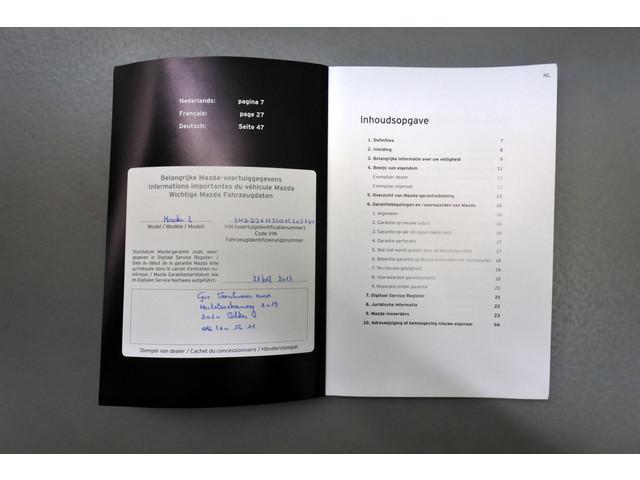 Nederlands: pagina 7
Français: page 27
Deutsch: Seite 47
Belangrijke Mazda-voertuiggegevens
Informations importantes du véhicule Mazda
Wichtige Mazda Fahrzeugdaten
Mazda 2
Model / Modèle / Modell
VIN (voertuigidentificatienummer)
Code VIN
Fahrzeugidentifizierungsnummer
Startdatum Mazda-garantie zoals weer-
gegeven in Digitaal Service Register: /
Date du début de la garantie Mazda telle
qu'indiquée dans le carnet d'entretien nu-
mérique: / Mazda Garantiestartdatum wie
im Digitalen Service Nachweis aufgeführt:
2017
2019
3020
Stempel van dealer / Cachet du concessionnaire / Händlerstempel
NL
Inhoudsopgave
1. Definities 7
2. Inleiding 8
3. Belangrijke informatie over uw veiligheid 9
4. Bewijs van eigendom 11
Exemplaar dealer 11
Exemplaar eigenaar 11
5. Overzicht van Mazda-garantiedekking
6. Garantiebepalingen en -voorwaarden van Mazda
1. Algemeen
2. Garantie op nieuwe auto's
3. Garantie op lak- en oppervlakteroest
4. Garantie perforatie
5. Wat niet wordt gedekt door de Mazda-garantie
6. Beperkte garantie op Mazda-onderdelen en -accessoires
7. Territoriale geldigheid
8. Garantieclaims
9. Reparatie onder garantie
7. Digitaal Service Register 21
8. Juridische informatie 22
9. Mazda-invoerders 23
10. Adreswijziging of kennisgeving nieuwe eigenaar 66